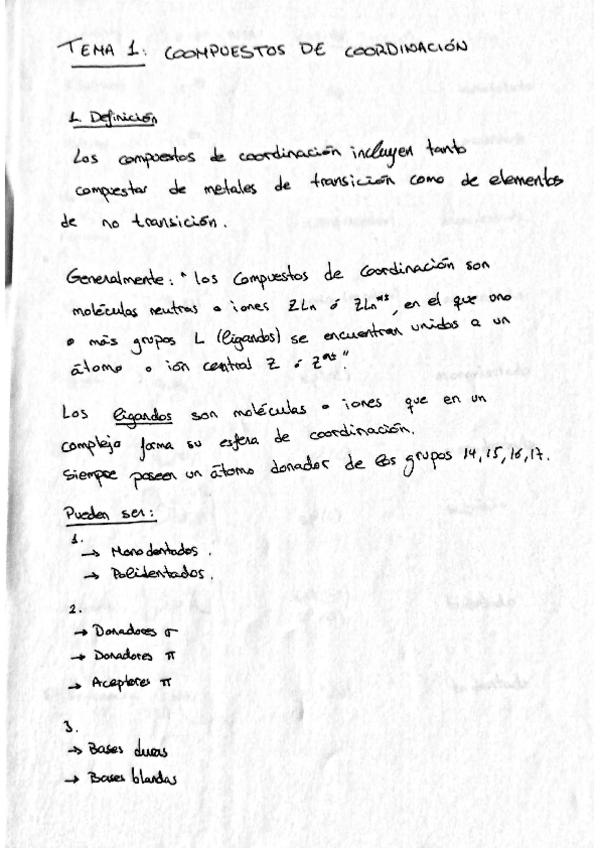 TEMA 1: COOMPUESTOS DE COORDINACIÓN
1. Definición
Los compuestos de coordinación incluyen tanto
compuestos de metales de transición como de elementos
de no transición.
Generalmente: "los compuestos de coordinación son
moléculas neutras o iones ZLn ó ZLn^m±, en el que uno
o más grupos L (ligandos) se encuentran unidos a un
átomo o ión central Z ó Z^m±".
Los ligandos son moléculas o iones que en un
complejo forma su esfera de coordinación.
Siempre poseen un átomo donador de los grupos 14, 15, 16, 17.
Pueden ser:
1.
→ Monodentados.
→ Polidentados.
2.
→ Donadores σ
→ Donadores π
→ Aceptores π
3.
→ Bases duras
→ Bases blandas